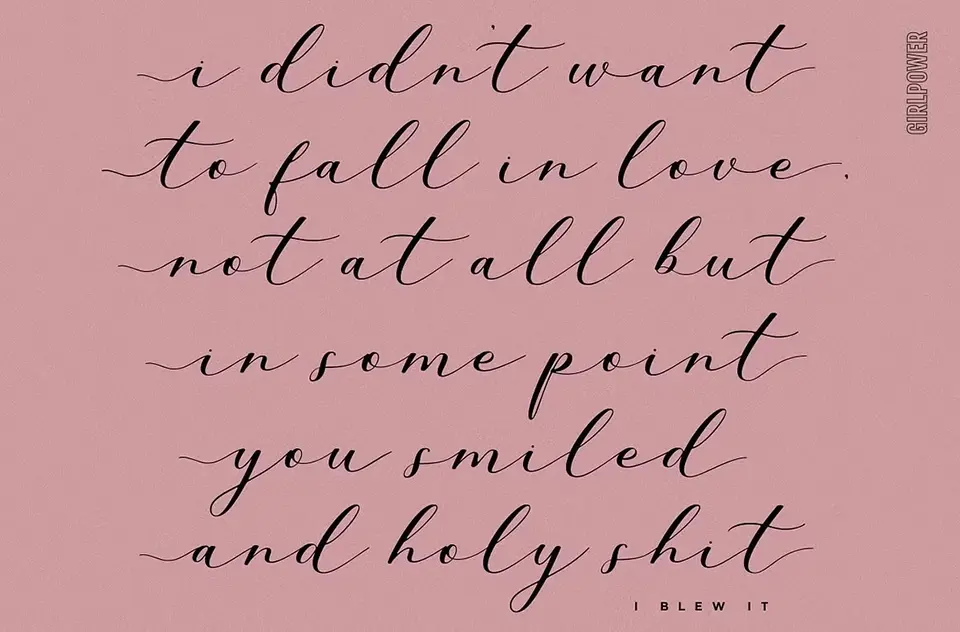 i didn't want
to fall in love,
not at all but
in some point
you smiled
and holy shit
I BLEW IT
GIRLPOWER